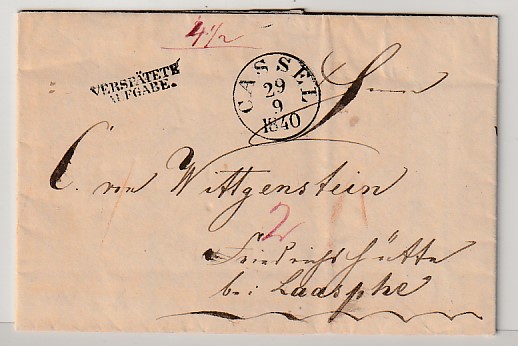 4½
VERSPÄTETE
AUFGABE.
CASSEL
29
9
1840
C. von Wittgenstein
2
Friedrichshütte
bei Laasphe